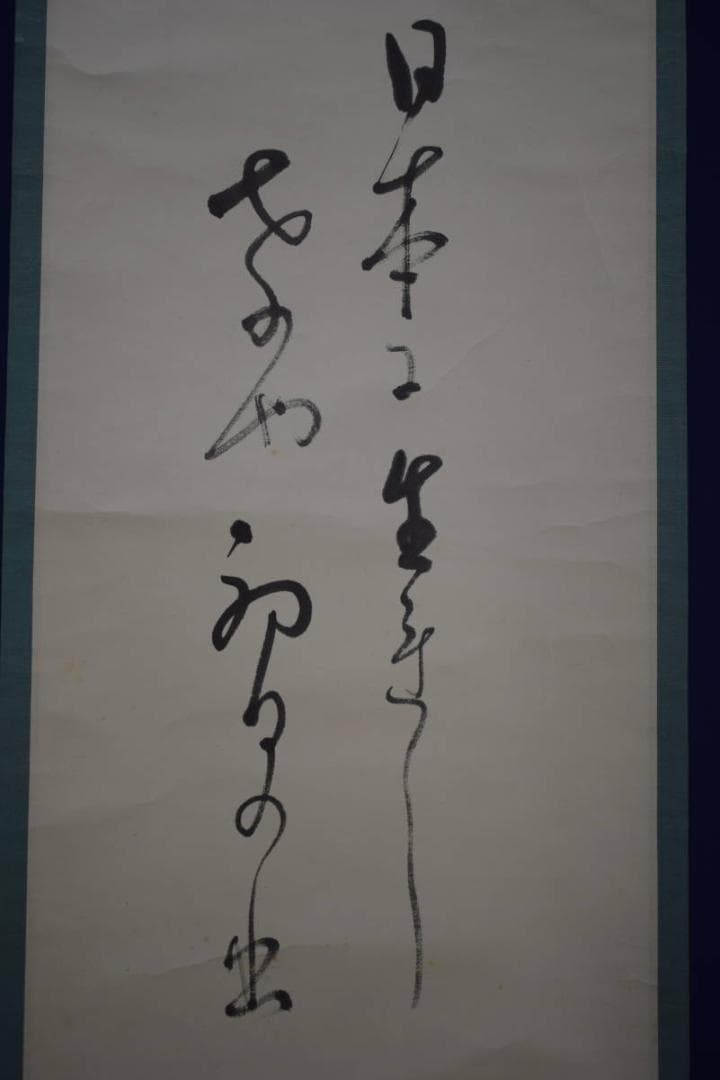 日本に生れし
さちや初日の出